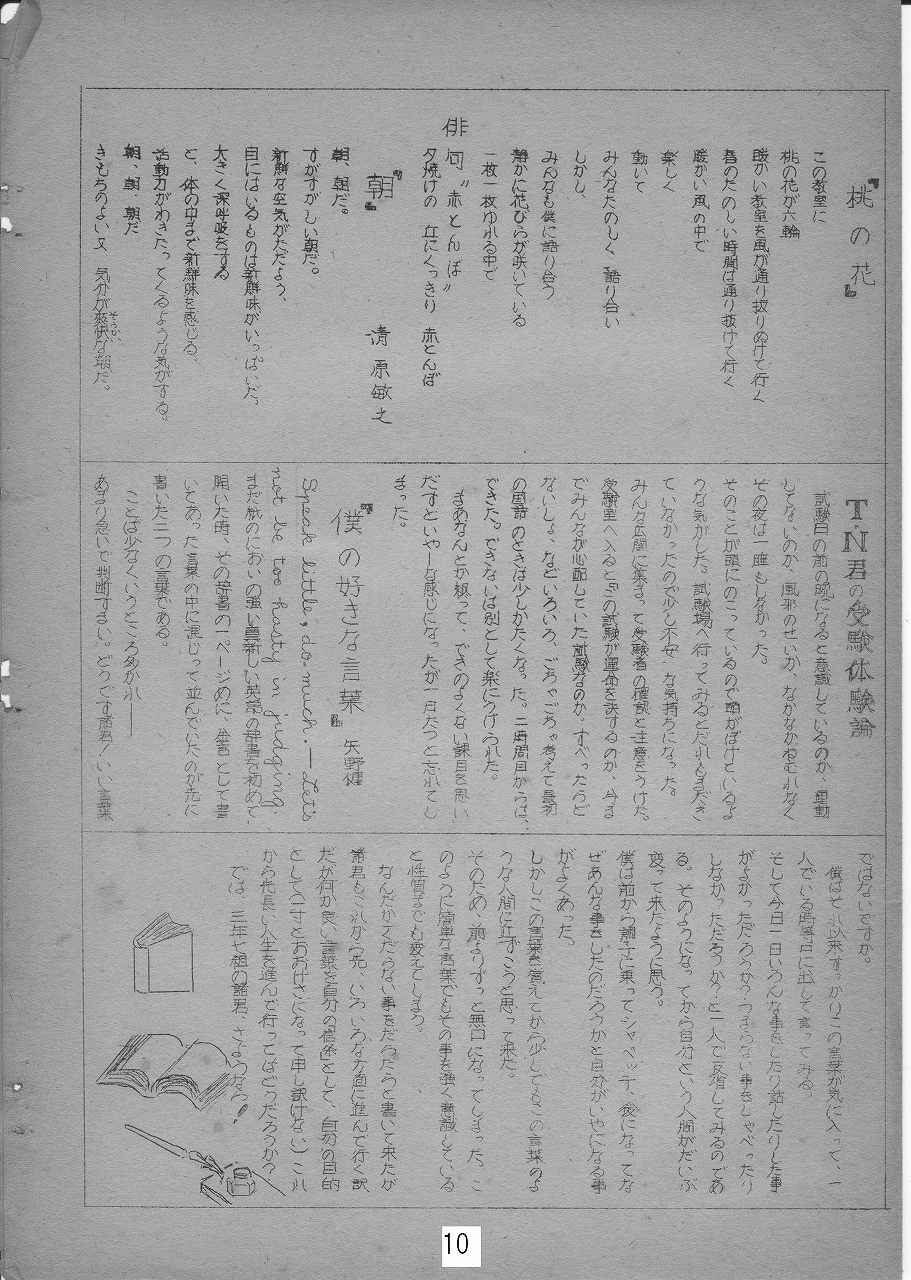 『桃の花』
この教室に
桃の花が六輪
暖かい教室を風が通り抜りぬけて行く
春のたのしい時間は通り抜けて行く
暖かい風の中で
楽しく
動いて
みんなたのしく語り合い
しかし
みんなも僕に語り合う
静かに花びらが咲いている
一枚一枚ゆれる中で
俳句〝赤とんぼ〟
夕焼けの 丘にくっきり 赤とんぼ
『朝』 清原敏之
朝、朝だ。
すがすがしい朝だ。
新鮮な空気がただよう、
目にはいるものは新鮮味がいっぱいだ。
大きく深呼吸をする
と、体の中まで新鮮味を感じる、
活動力がわきたってくるような気がする。
朝、朝、朝だ
きもちのよい又、気分が爽快な朝だ。
そうかい
T・N君の受験体験論
試験日の前の晩になると意識しているのか、運動
してないのか、風邪のせいか、なかなかねむれなく
その夜は一睡もしなかった。
そのことが頭にのこっているので頭がぼけているよ
うな気がした。試験場へ行ってみるとだれもまだき
ていなかったので少し不安な気持ちになった。
みんな広間に集まって受験者の確認と注意をうけた。
受験室へ入ると「この試験が運命を決するのか、今ま
でみんなが心配していた試験なのか。すべったらど
ないしょ、などいろいろ、ごちゃごちゃ考えて最初
の国語のときは少しかたくなった。二時間目からは、
できた。できないは別として楽にうけられた。
まあなんとか終って、できのよくない課目を思い
だすといやーな感じになったが一日たつと忘れてし
まった。
『僕の好きな言葉』 矢野健
Speak little, do much. — Let's
not be too hasty in judging.
まだ紙のにおいの強い真新しい英語の辞書を初めて
開いた時、その辞書の一ページめに、金言として書
いてあった言葉の中に混じって並んでいたのが先に
書いた二つの言葉である。
ことば少なくいうところ多かれ――
あまり急いで判断するまい。どうです諸君！いい言葉
ではないですか。
僕はそれ以来すっかりこの言葉が気に入って、一
人でいる時等口に出して言ってみる。
そして今日一日いろんな事をしたり話したりした事
がよかっただろうか？つまらない事をしゃべったり
しなかっただろうか？と一人で反省してみるのであ
る。そのようになってから自分という人間がだいぶ
変って来たように思う。
僕は前から調子に乗ってシャベッテ、後になってな
ぜあんな事をしたのだろうかと自分がいやになる事
がよくあった。
しかしこの言葉を覚えてから少しでもこの言葉のよ
うな人間に近ずこうと思って来た。
そのため、前よりずっと無口になってしまった。こ
のように簡単な言葉でもその事を強く意識している
と性質までも変えてしまう。
なんだかくだらない事をだらだらと書いて来たが
諸君もこれから先、いろいろな方面に進んで行く訳
だが何か良い言葉を自分の「信条」として、自分の目的
として（一寸とおおげさになって申し訳けない）これ
から先長い人生を進んで行ってはどうだろうか？
では、三年七組の諸君、さようなら！
10